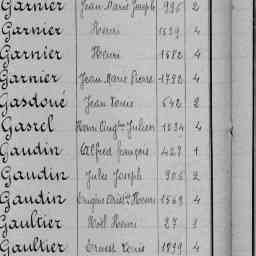 Garnier Jean Marie Joseph 996 2
Garnier Henri 1639 4
Garnier Henri 1682 4
Garnier Jean Marie Pierre 1782 4
Gasdoué Jean Louis 642 2
Gasrel Henri Aug<sup>te</sup> Julien 1834 4
Gaudin Alfred François 427 1
Gaudin Jules Joseph 906 2
Gaudin Eugène Henri 1569 4
Gaultier Noël Henri 27 1
Gaultier Ernest Louis 1899 4